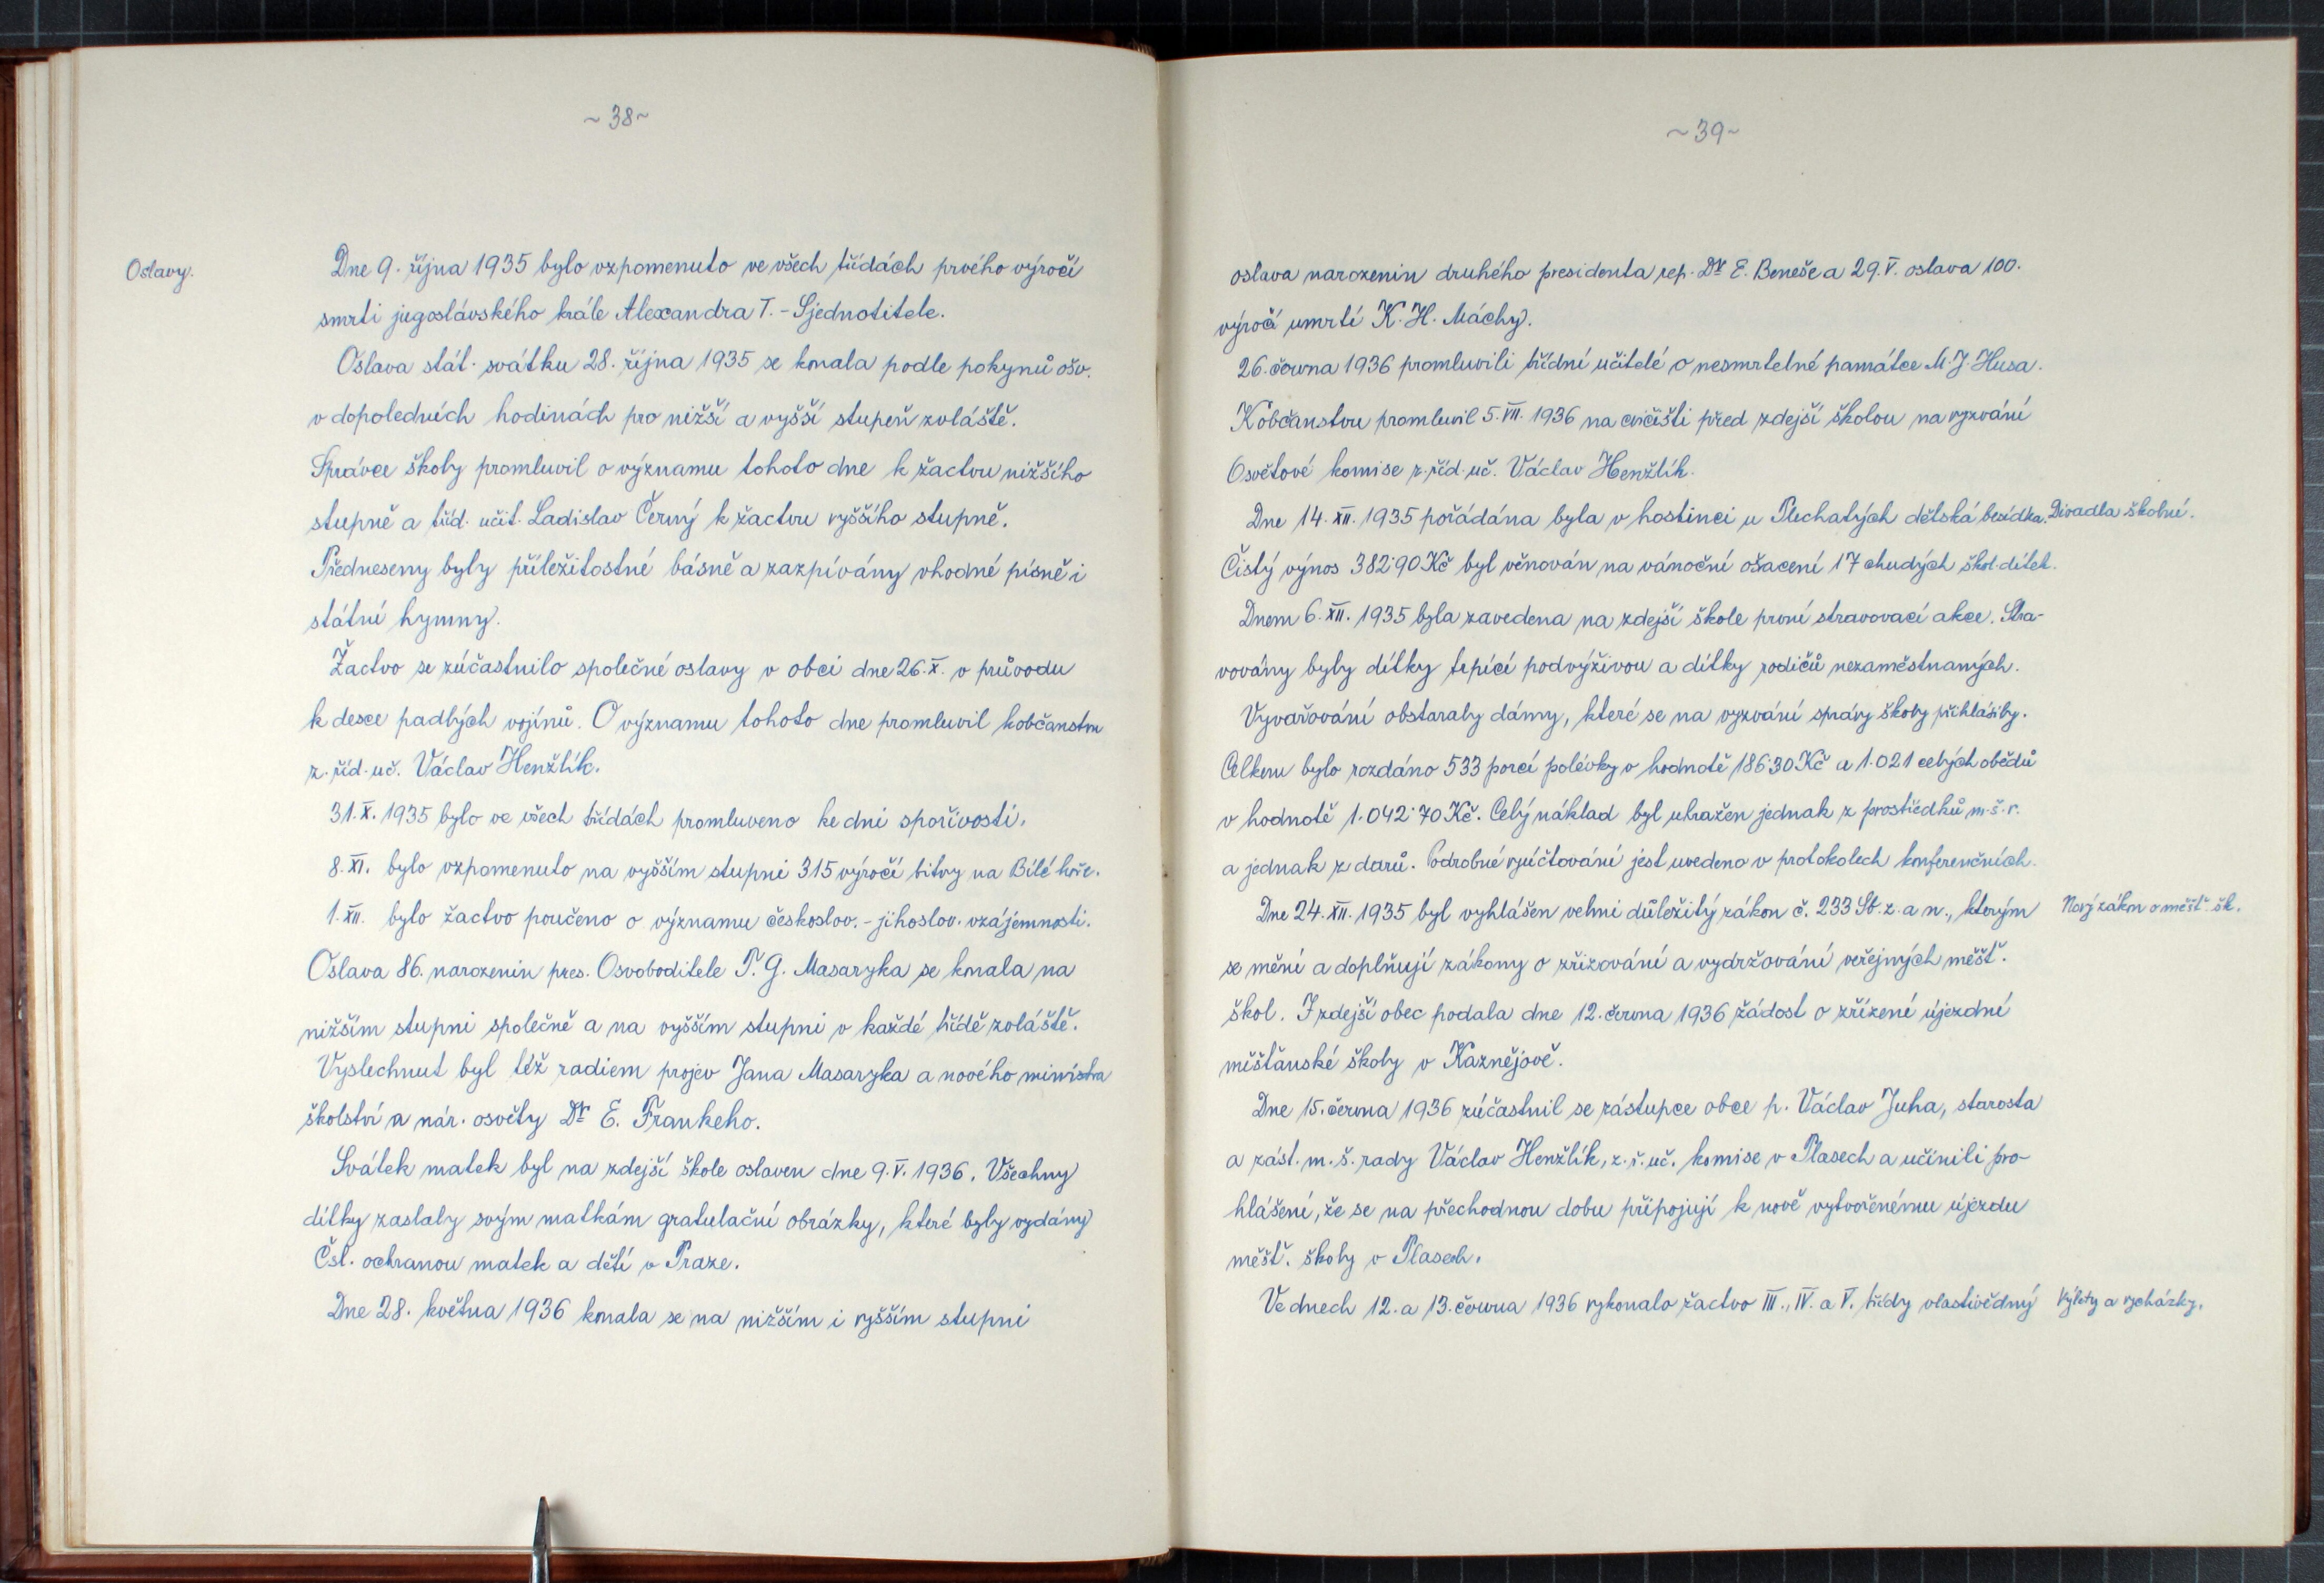 ~38~
Oslavy.
Dne 9. října 1935 bylo vzpomenuto ve všech třídách prvého výročí
smrti jugoslávského krále Alexandra I. - Sjednotitele.
Oslava stát. svátku 28. října 1935 se konala podle pokynů ošv.
v dopoledních hodinách pro nižší a vyšší stupeň zvláště.
Správce školy promluvil o významu tohoto dne k žactvu nižšího
stupně a tříd. učit. Ladislav Černý k žactvu vyššího stupně.
Předneseny byly příležitostné básně a zazpívány vhodné písně i
státní hymny.
Žactvo se zúčastnilo společné oslavy v obci dne 26. X. v průvodu
k desce padlých vojínů. O významu tohoto dne promluvil k občanstvu
z. říd. uč. Václav Henžlík.
31. X. 1935 bylo ve všech třídách promluveno ke dni spořivosti.
8. XI. bylo vzpomenuto na vyšším stupni 315 výročí bitvy na Bílé hoře.
1. XII. bylo žactvo poučeno o významu českoslov. - jihoslov. vzájemnosti.
Oslava 86. narozenin pres. Osvoboditele T. G. Masaryka se konala na
nižším stupni společně a na vyšším stupni v každé třídě zvláště.
Vyslechnut byl též radiem projev Jana Masaryka a nového ministra
školství a nár. osvěty Dr E. Frankeho.
Svátek matek byl na zdejší škole oslaven dne 9. V. 1936. Všechny
dítky zaslaly svým matkám gratulační obrázky, které byly vydány
Čsl. ochranou matek a dětí v Praze.
Dne 28. května 1936 konala se na nižším i vyšším stupni
~39~
oslava narozenin druhého presidenta rep. Dr E. Beneše a 29. V. oslava 100.
výročí umrtí K. H. Máchy.
26. června 1936 promluvili třídní učitelé o nesmrtelné památce M. J. Husa.
K občanstvu promluvil 5. VII. 1936 na cvičišti před zdejší školou na vyzvání
Osvětové komise z. říd. uč. Václav Henžlík.
Dne 14. XII. 1935 pořádána byla v hostinci u Plechatých dětská besídka. Divadla školní.
Čistý výnos 382·90 Kč byl věnován na vánoční ošacení 17 chudých škol. dítek.
Dnem 6. XII. 1935 byla zavedena na zdejší škole první stravovací akce. Stra-
vovány byly dítky trpící podvýživou a dítky rodičů nezaměstnaných.
Vyvařování obstaraly dámy, které se na vyzvání správy školy přihlásily.
Celkem bylo rozdáno 533 porcí polévky v hodnotě 186·30 Kč a 1.021 celých obědů
v hodnotě 1.042·70 Kč. Celý náklad byl uhražen jednak z prostředků m. š. r.
a jednak z darů. Podrobné vyúčtování jest uvedeno v protokolech konferenčních.
Dne 24. XII. 1935 byl vyhlášen velmi důležitý zákon č. 233 Sb. z. a n., kterým Nový zákon o měšť. šk.
se mění a doplňují zákony o zřizování a vydržování veřejných měšť.
škol. I zdejší obec podala dne 12. června 1936 žádost o zřízení újezdní
měšťanské školy v Kaznějově.
Dne 15. června 1936 zúčastnil se zástupce obce p. Václav Juha, starosta
a zást. m. š. rady Václav Henžlík, z. ř. uč. komise v Plasech a učinili pro-
hlášení, že se na přechodnou dobu připojují k nově vytvořenému újezdu
měšť. školy v Plasech.
Ve dnech 12. a 13. června 1936 vykonalo žactvo III., IV. a V. třídy vlastivědný Výlety a vycházky.